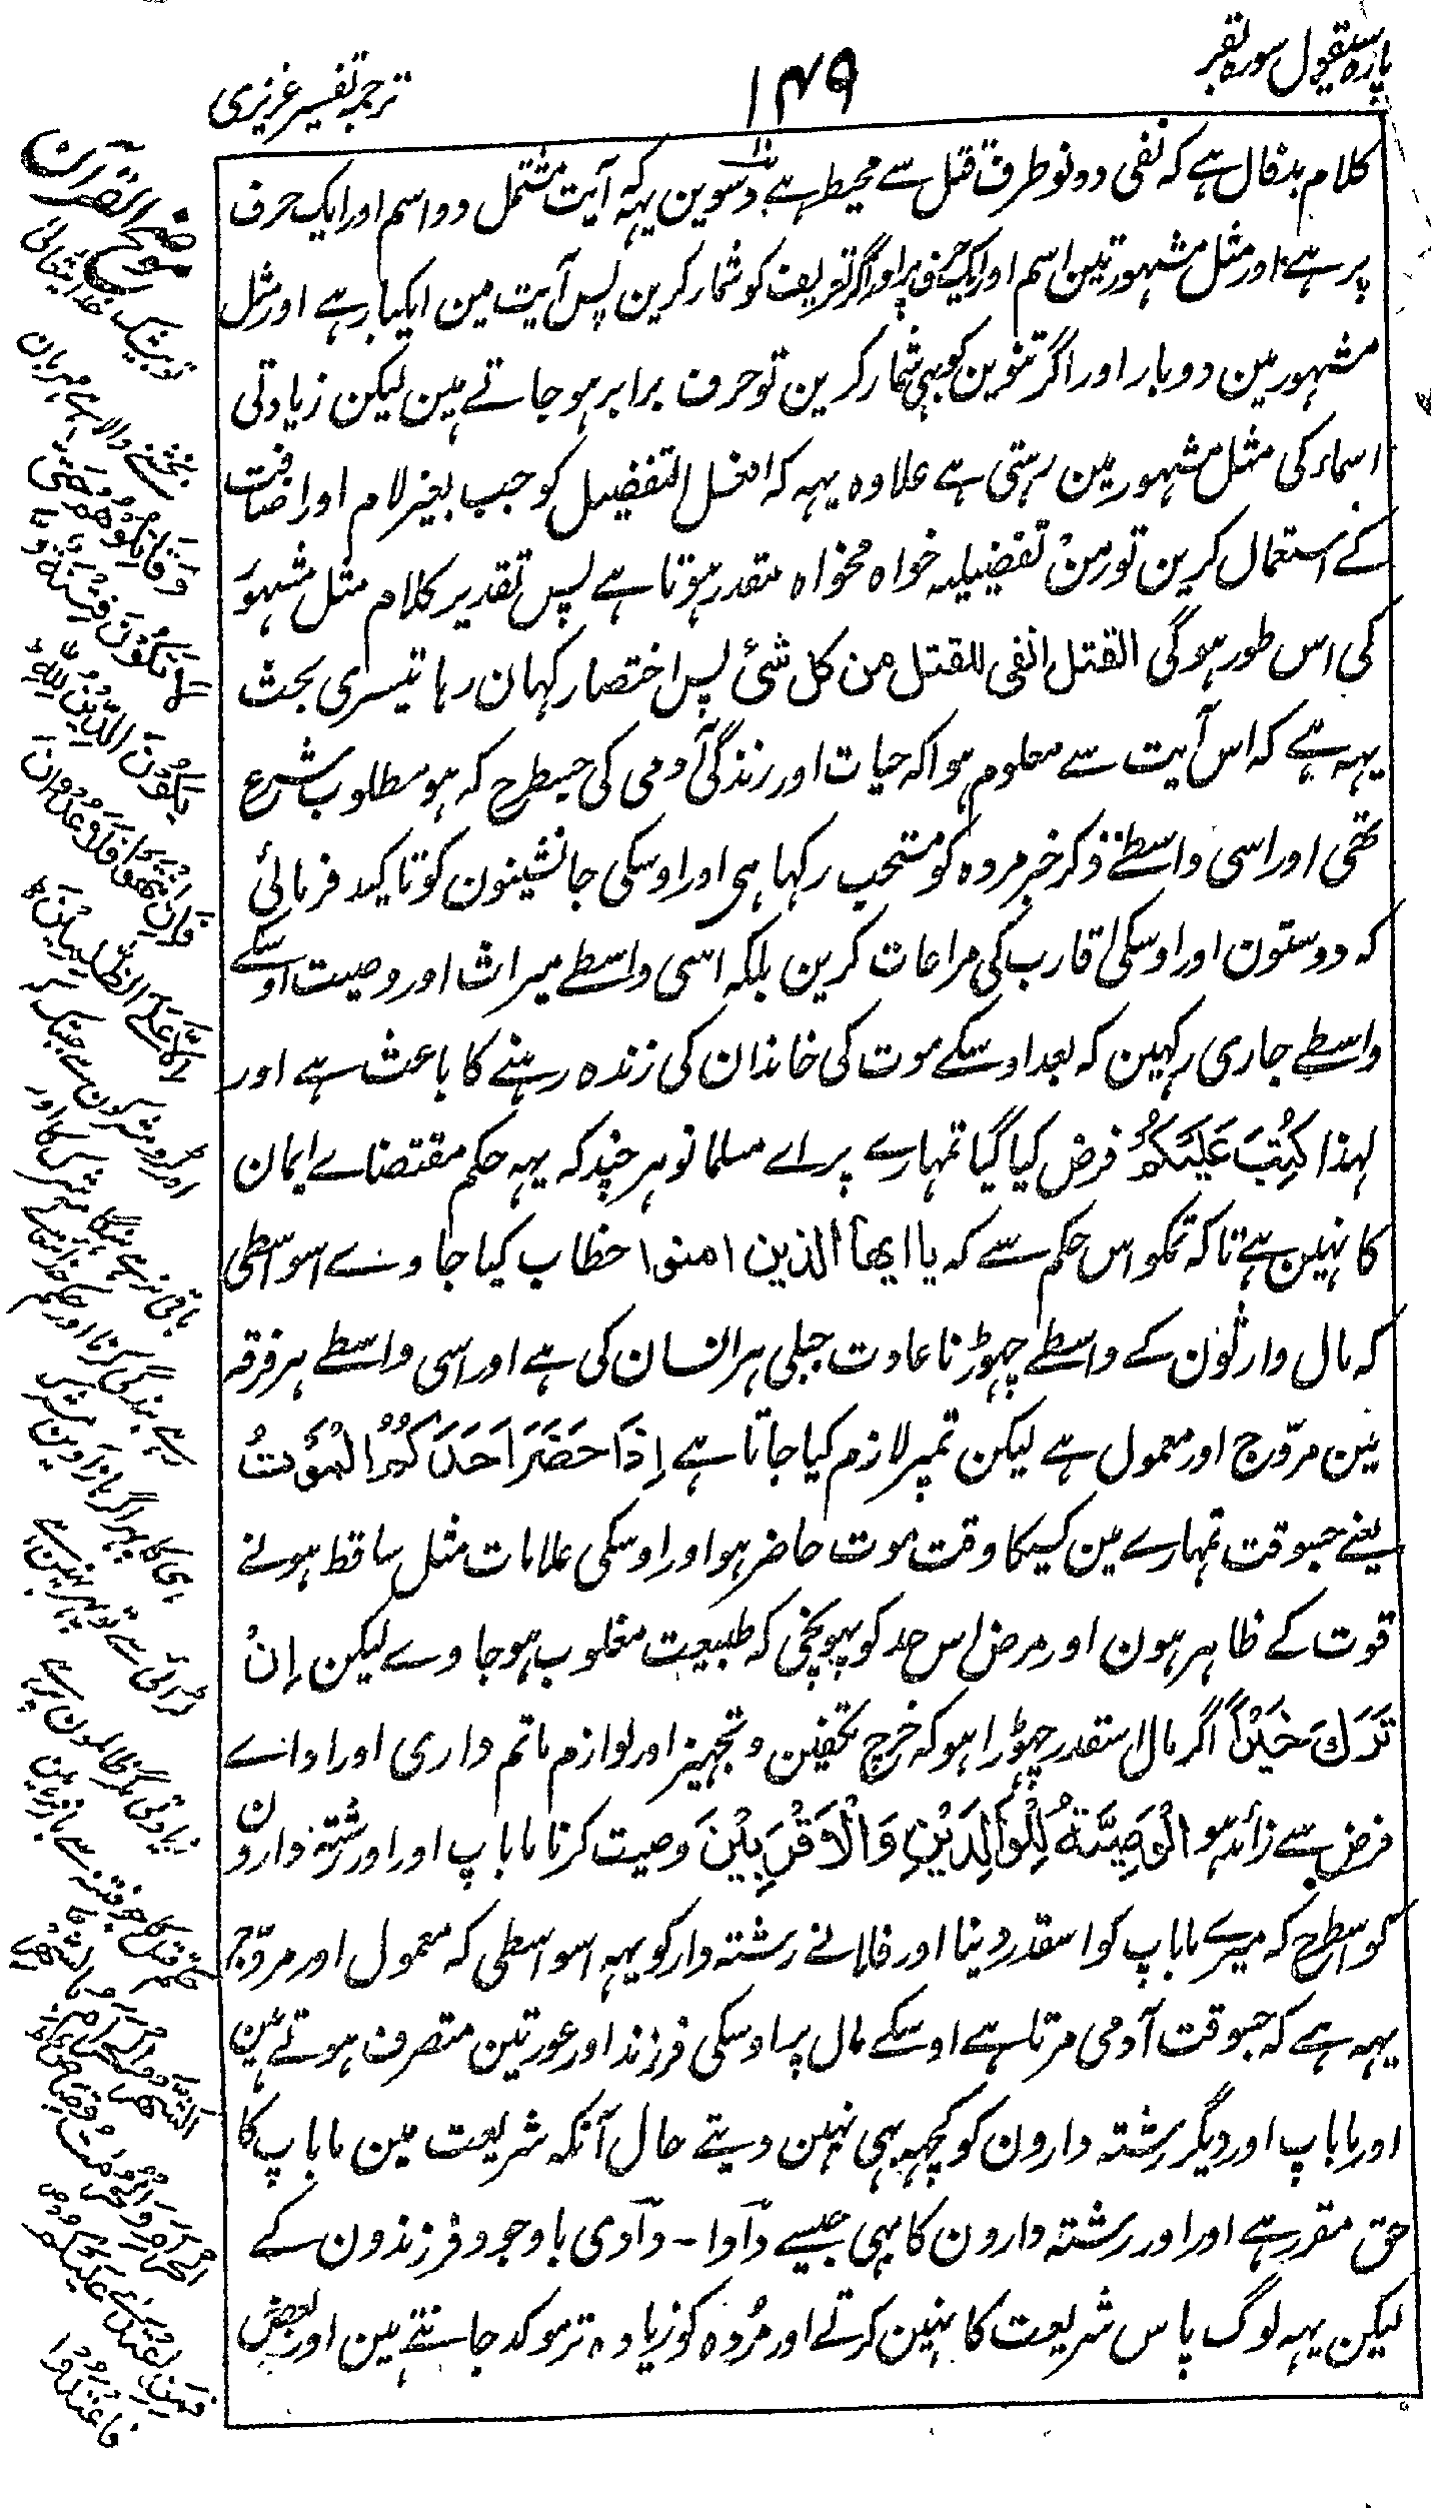 پارہ سیقول سورہ بقر
۱۴۹
ترجمہ تفسیر عزیزی
کلام بدفال ہے کہ نفی دونو طرف قتل سے محیط ہے دسوین یہہ کہ آیت مشتمل دو اسم اور ایک حرف
پر ہے اور مثل مشہور تین اسم اور ایک حرف پر اور اگر تعریف کو شمار کرین پس آیت مین ایکبار ہے اور مثل
مشہور مین دو بار اور اگر تنوین کو بہی شمار کرین تو حرف برابر ہو جاتے ہین لیکن زیادتی
اسماء کی مثل مشہور مین رہتی ہے علاوہ یہہ کہ افعل التفضیل کو جب بغیر لام اور اضافت
کے استعمال کرین تو مِنْ تفضیلیہ خواہ مخواہ مقدر ہوتا ہے پس تقدیر کلام مثل مشہور
کی اس طور ہوگی القتل انفی للقتل من کل شئ پس اختصار کہان رہا تیسری بحث
یہہ ہے کہ اس آیت سے معلوم ہوا کہ حیات اور زندگی آدمی کی جسطرح کہ ہو مطلوب شرع
تھی اور اسی واسطے ذکر خیر مردہ کو مستحب رکہا ہی اور اوسکی جانشینون کو تاکید فرمائی
کہ دوستون اور اوسکی اقارب کی مراعات کرین بلکہ اسی واسطے میراث اور وصیت اوسکے
واسطے جاری رکہین کہ بعد اوسکے موت کی خاندان کی زندہ رہنے کا باعث ہے اور
لہذا کُتِبَ عَلَیْکُمْ فرض کیا گیا تمہارے پر اے مسلمانو ہر چند کہ یہہ حکم مقتضاے ایمان
کا نہین ہے تاکہ تمکو اس حکم سے کہ یا ایها الذین امنوا خطاب کیا جاوے اسواسطی
کہ مال وارثون کے واسطے چہوڑنا عادت جبلی ہر انسان کی ہے اور اسی واسطے ہر فرقہ
مین مروّج اور معمول ہے لیکن تمپر لازم کیا جاتا ہے اِذَا حَضَرَ اَحَدَکُمُ الْمَوْتُ
یعنے جسوقت تمہارے مین کسیکا وقت موت حاضر ہو اور اوسکی علامات مثل ساقط ہونے
قوت کے ظاہر ہون اور مرض اس حد کو پہونچی کہ طبیعت مغلوب ہو جاوے لیکن اِنْ
تَرَكَ خَیْرًا اگر مال اسقدر چہوڑا ہو کہ خرچ تکفین و تجہیز اور لوازم ماتم داری اور اداے
قرض سے زائد ہو الْوَصِیَّةُ لِلْوَالِدَیْنِ وَالْاَقْرَبِیْنَ وصیت کرنا ما باپ اور اور رشتہ دارون
کو اسطرح کہ میرے ما باپ کو اسقدر دینا اور فلانے رشتہ دار کو یہہ اسواسطی کہ معمول اور مروّج
یہہ ہے کہ جسوقت آدمی مرتا ہے اوسکے مال پر اوسکی فرزند اور عورتین متصرف ہوتے ہین
اور ما باپ اور دیگر رشتہ دارون کو کچہہ بہی نہین دیتے حال آنکہ شریعت مین ما باپ کا
حق مقرر ہے اور اور رشتہ دارون کا بہی جیسے دادا - دادی باوجود فرزندون کے
لیکن یہہ لوگ پاس شریعت کا نہین کرتے اور مُردہ کو زیادہ تر موکد جانتے ہین اور بعض
موضح القرآن
تو بیشک خدایتعالی
بخشنے والا ہے مہربان
وَقَاتِلُوْهُمْ حَتّٰی
لَا تَکُوْنَ فِتْنَةٌ وَّ
یَکُوْنَ الدِّیْنُ لِلّٰهِ
فَاِنِ انْتَهَوْا فَلَا عُدْوَانَ
اِلَّا عَلَی الظّٰلِمِیْنَ
اور لڑو مشرکون سے جنگ کہ
باقی نہ رہے
رہے بندگی کرنا اور حکم خدایتعالے
ہی کا پہر اگر باز آوین شرک
لڑائی سے تو پہر نہین ہے
زیادتی مگر ظالمون پر ہے
اَلشَّهْرُ الْحَرَامُ بِالشَّهْرِ
الْحَرَامِ وَالْحُرُمٰتُ قِصَاصٌ
فَمَنِ اعْتَدٰی عَلَیْکُمْ
فَاعْتَدُوْا